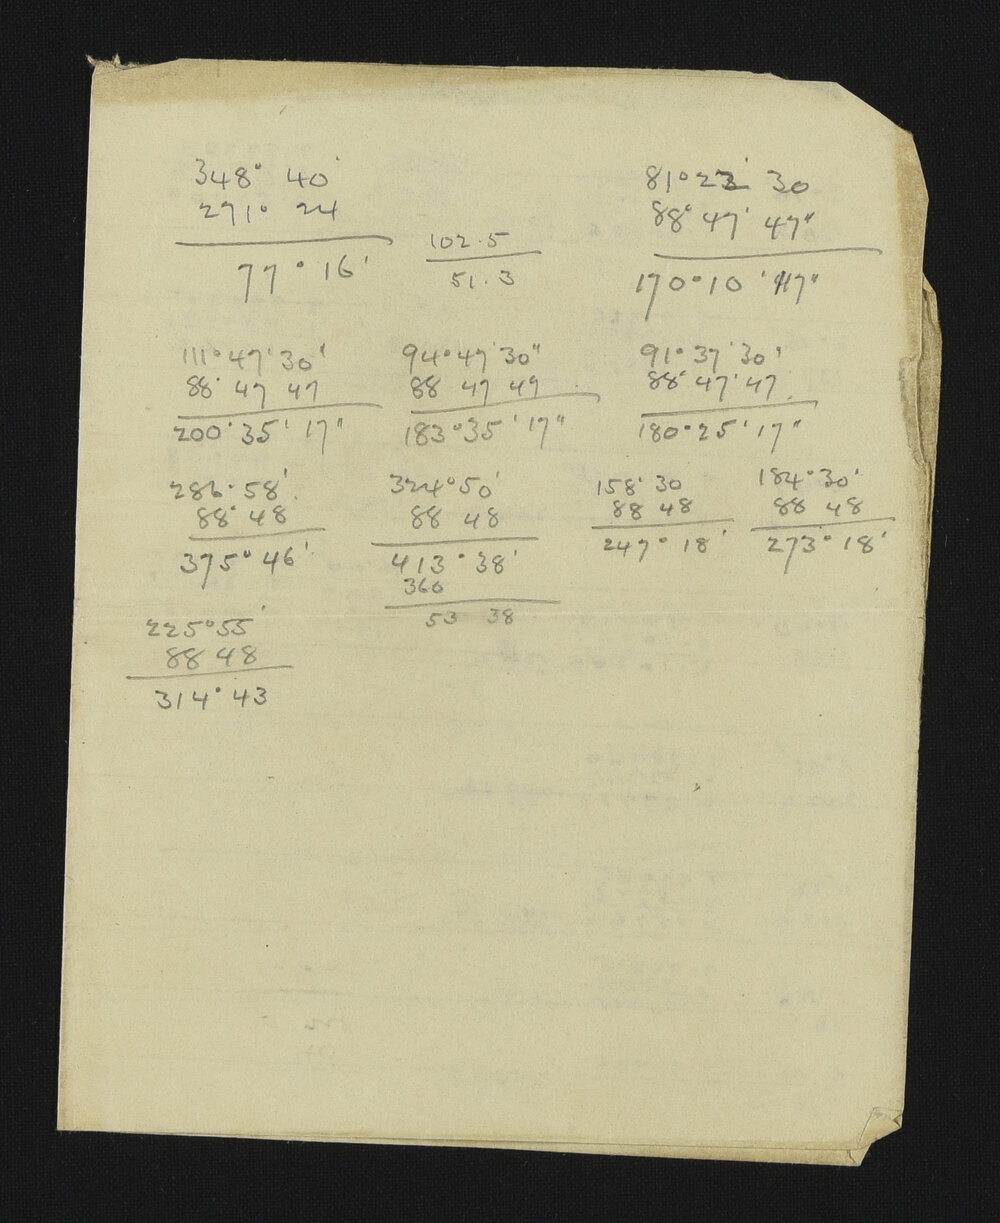 348° 40'
271° 24
77° 16'
102.5
51.3
81° 22' 30
88° 47' 47"
170° 10' 17"
111° 47' 30"
88° 47 47
200° 35' 17"
94° 47' 30"
88 47 47
183° 35' 17"
91° 37' 30'
88° 47' 47
180° 25' 17"
286° 58'
88° 48
375° 46'
324° 50'
88 48
413° 38'
360
53 38
158° 30
88 48
247° 18'
184° 30'
88 48
273° 18'
225° 55'
88 48
314° 43